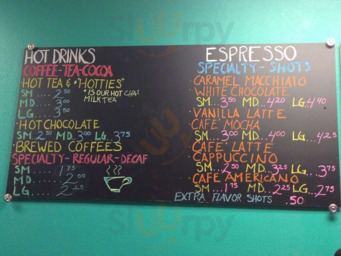 HOT DRINKS
COFFEE-TEA-COCOA
HOT TEA & "HOTTIES"
SM.... 2 50 * IS OUR HOT CHAI
MD.... 3 00 MILK TEA
LG.... 3 50
HOT CHOCOLATE
SM. 2 50 MD. 3 00 LG. 3 75
BREWED COFFEES
SPECIALTY-REGULAR-DECAF
SM..... 1 75
MD..... 2 00
LG..... 2 25
ESPRESSO
SPECIALTY-SHOTS
CARAMEL MACCHIATO
WHITE CHOCOLATE
SM. 3 50 MD.. 4 20 LG 4 40
VANILLA LATTE
CAFE MOCHA
SM... 3 00 MD.. 4 00 LG.. 4 25
CAFE' LATTE
CAPPUCCINO
SM... 2 50 MD.. 3 25 LG... 3 75
CAFE AMERICANO
SM.. 1 75 MD.. 2 25 LG.. 2 75
EXTRA FLAVOR SHOTS .50